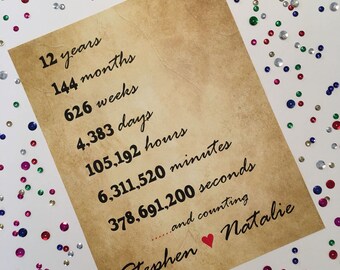 12 years
144 months
626 weeks
4,383 days
105,192 hours
6,311,520 minutes
378,691,200 seconds
......and counting
Stephen ♥ Natalie